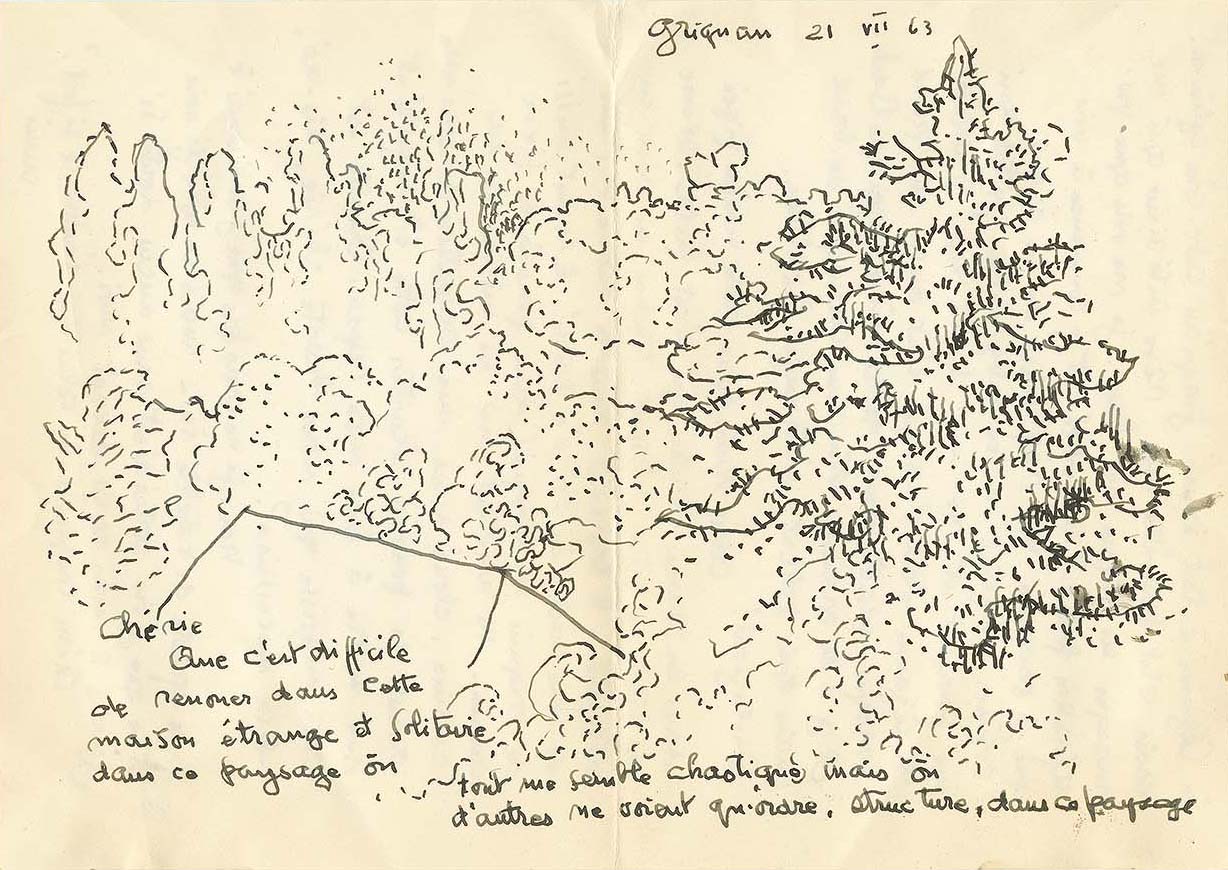 Grignan 21 VII 63
Chérie
Que c'est difficile
de renouer dans cette
maison étrange et solitaire
dans ce paysage où
tout me semble chaotique mais où
d'autres ne voient qu'ordre, structure, dans ce paysage